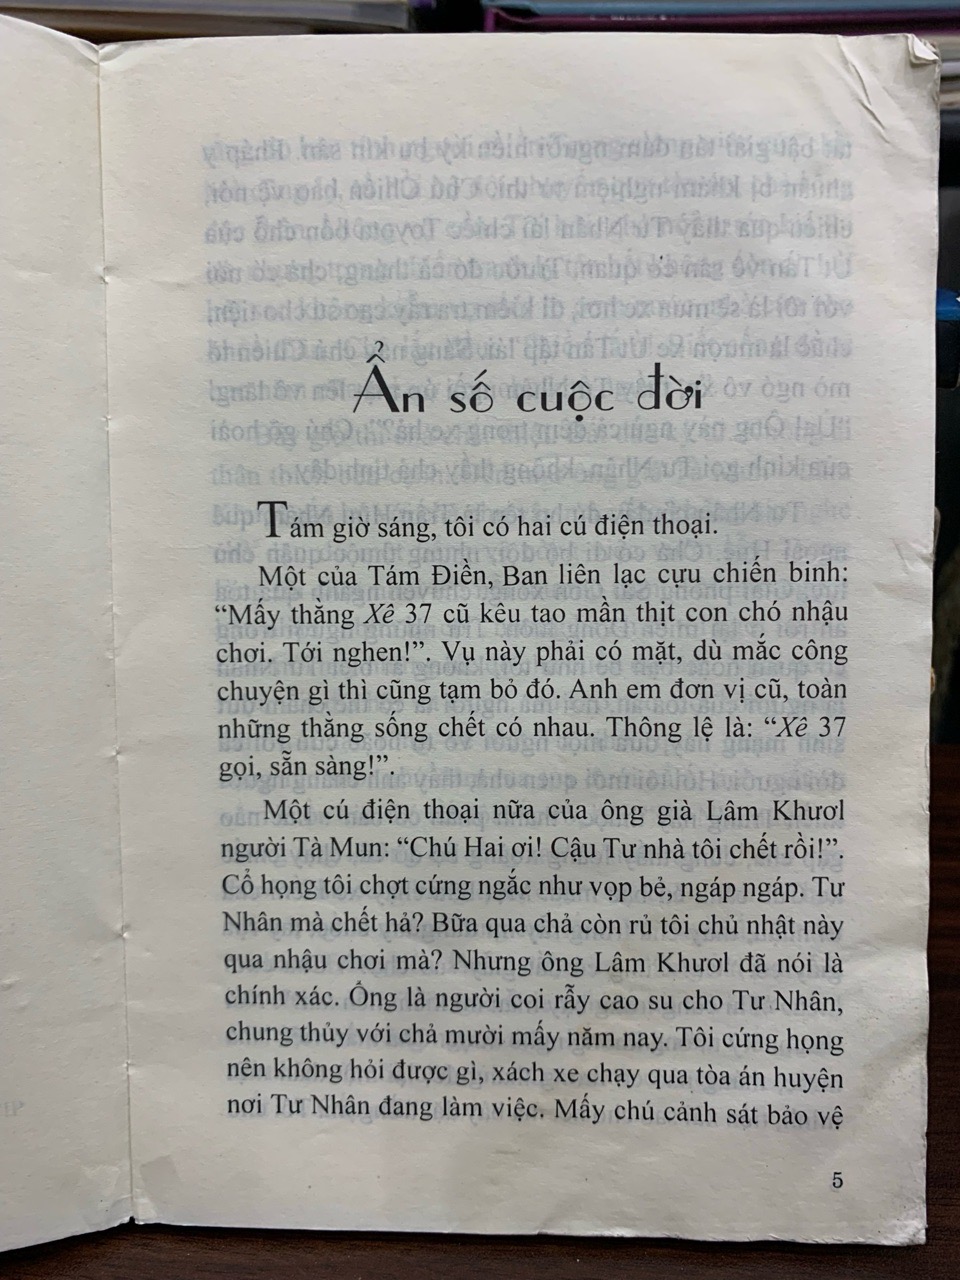 Ẩn số cuộc đời
Tám giờ sáng, tôi có hai cú điện thoại:
Một của Tám Điền, Ban liên lạc cựu chiến binh:
“Mấy thằng Xê 37 cũ kêu tao mần thịt con chó nhậu
chơi. Tới nghen!”. Vụ này phải có mặt, dù mắc công
chuyện gì thì cũng tạm bỏ đó. Anh em đơn vị cũ, toàn
những thằng sống chết có nhau. Thông lệ là: “Xê 37
gọi, sẵn sàng!”.
Một cú điện thoại nữa của ông già Lâm Khươl
người Tà Mun: “Chú Hai ơi! Cậu Tư nhà tôi chết rồi!”.
Cổ họng tôi chợt cứng ngắc như vọp bẻ, ngáp ngáp. Tư
Nhân mà chết hả? Bữa qua chả còn rủ tôi chủ nhật này
qua nhậu chơi mà? Nhưng ông Lâm Khươl đã nói là
chính xác. Ông là người coi rẫy cao su cho Tư Nhân,
chung thủy với chả mười mấy năm nay. Tôi cứng họng
nên không hỏi được gì, xách xe chạy qua tòa án huyện
nơi Tư Nhân đang làm việc. Mấy chú cảnh sát bảo vệ
5